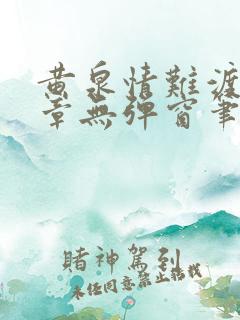 黄泉情難渡
章無彈窗筆
賭神駕到
未經同意禁止轉載